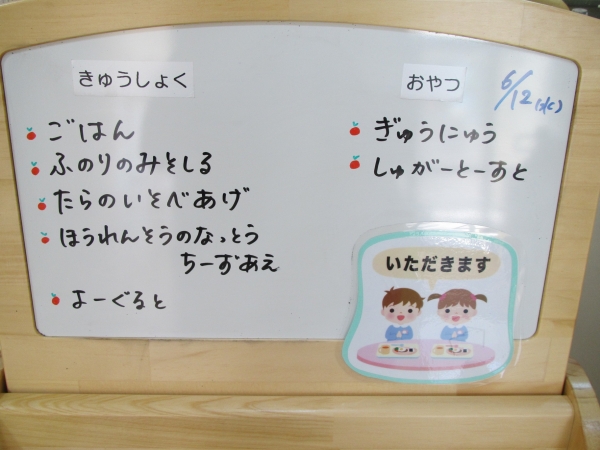 きゅうしょく
ごはん
ふのりのみそしる
たらのいそべあげ
ほうれんそうのなっとう
ちーずあえ
よーぐると
おやつ
6/12(水)
ぎゅうにゅう
しゅがーとーすと
いただきます